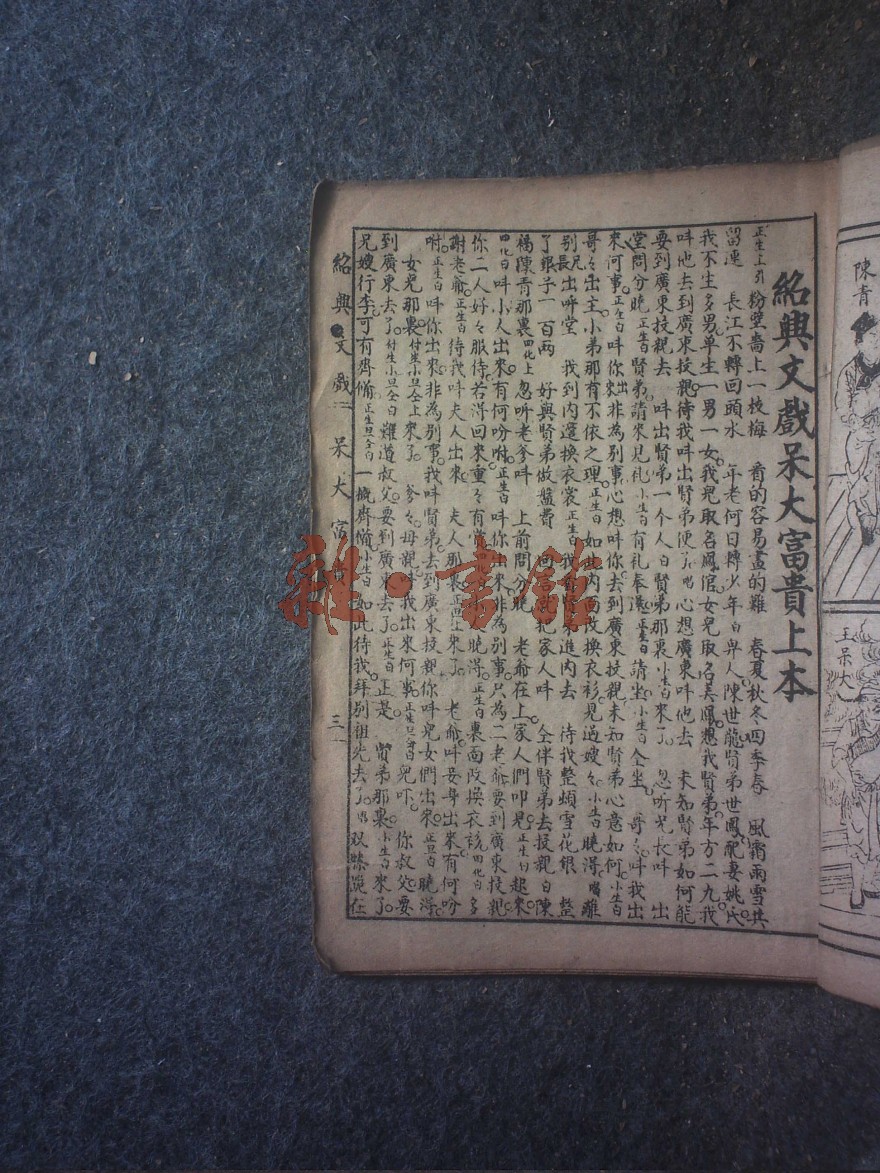 紹興文戲呆大富貴上本
正生上引 粉壁墻上一枝梅 看的容易畫的難 春夏秋冬四季春 風霜雨雪共
留連 長江不轉回頭水 年老何日轉少年白與人陳世龍賢弟世鳳配妻姚氏
我不生多男單生一男一女我兒取名鳳倌女兒取名美鳳想我賢弟年方二九我
呌他去到廣東投親待我呌出賢弟便了唱心想廣東呌他去 未知賢弟如何能
要到廣東投親去 呌出賢弟一个人白賢弟那裏小生白來了 忽听兄長呌 出
堂問分曉正生白賢弟請來見礼小生白有礼奉還正生白請坐小生白仝坐 哥々呌我出
來何事正生白呌你出來非為別事心想呌你去到廣東投親未知賢弟心意如何小生白
哥々出主小弟那有不依之理正生白如此內面改換衣衫見過嫂々小生白曉得唱離
別兄長出呼堂 我到內邊換衣裳正生白我看賢弟進內去 待我整頓雪花銀 整
了銀子一百兩 好與賢弟做盤費 回言就把家人呌 仝伴賢弟去投親白陳
福陳青那裏四化上 忽听老爹呌 上前問分曉 老爺在上家人們叩見正生白起來
四化白呌小人出來有何吩咐正生白呌你出來非為別事只為二老爺要到廣東投親
你二人好々服侍若得回來重々有賞四化白小人曉得正生白裏面改換衣衫四化白多
謝老爺正生白待我呌夫人出來 夫人那裏正旦上來了 老爺呌妾身出來有何吩
咐正生白呌你出來非為別事我呌賢弟去到廣東投親你呌兒女們出來正旦白曉得
女兒那裏付生小旦仝上來了 爹々母親呌我出來何事正生旦仝白兒吓 你叔父要
到廣東去了付生小旦仝白難道叔父要到廣東去了正生白正是 賢弟那裏小生白來了
兄嫂行李可有齊備正生旦仝白一概齊備小生白如此待我拜別祖先去了唱双膝跪在
紹興文戲 呆大富貴 三
陳青
王呆大
雜·書館